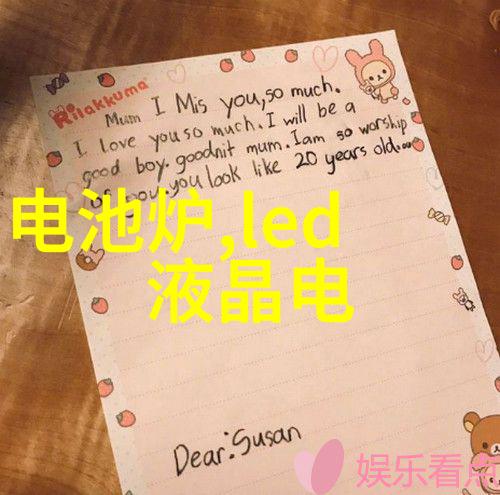 Rilakkuma
Mum I Mis you,so much.
I love you so much.I will be a
good boy.goodnit mum.Iam so worship
of you,you look like 20 years old.
电池炉,led
液晶电
Dear:Susan
娱乐看点